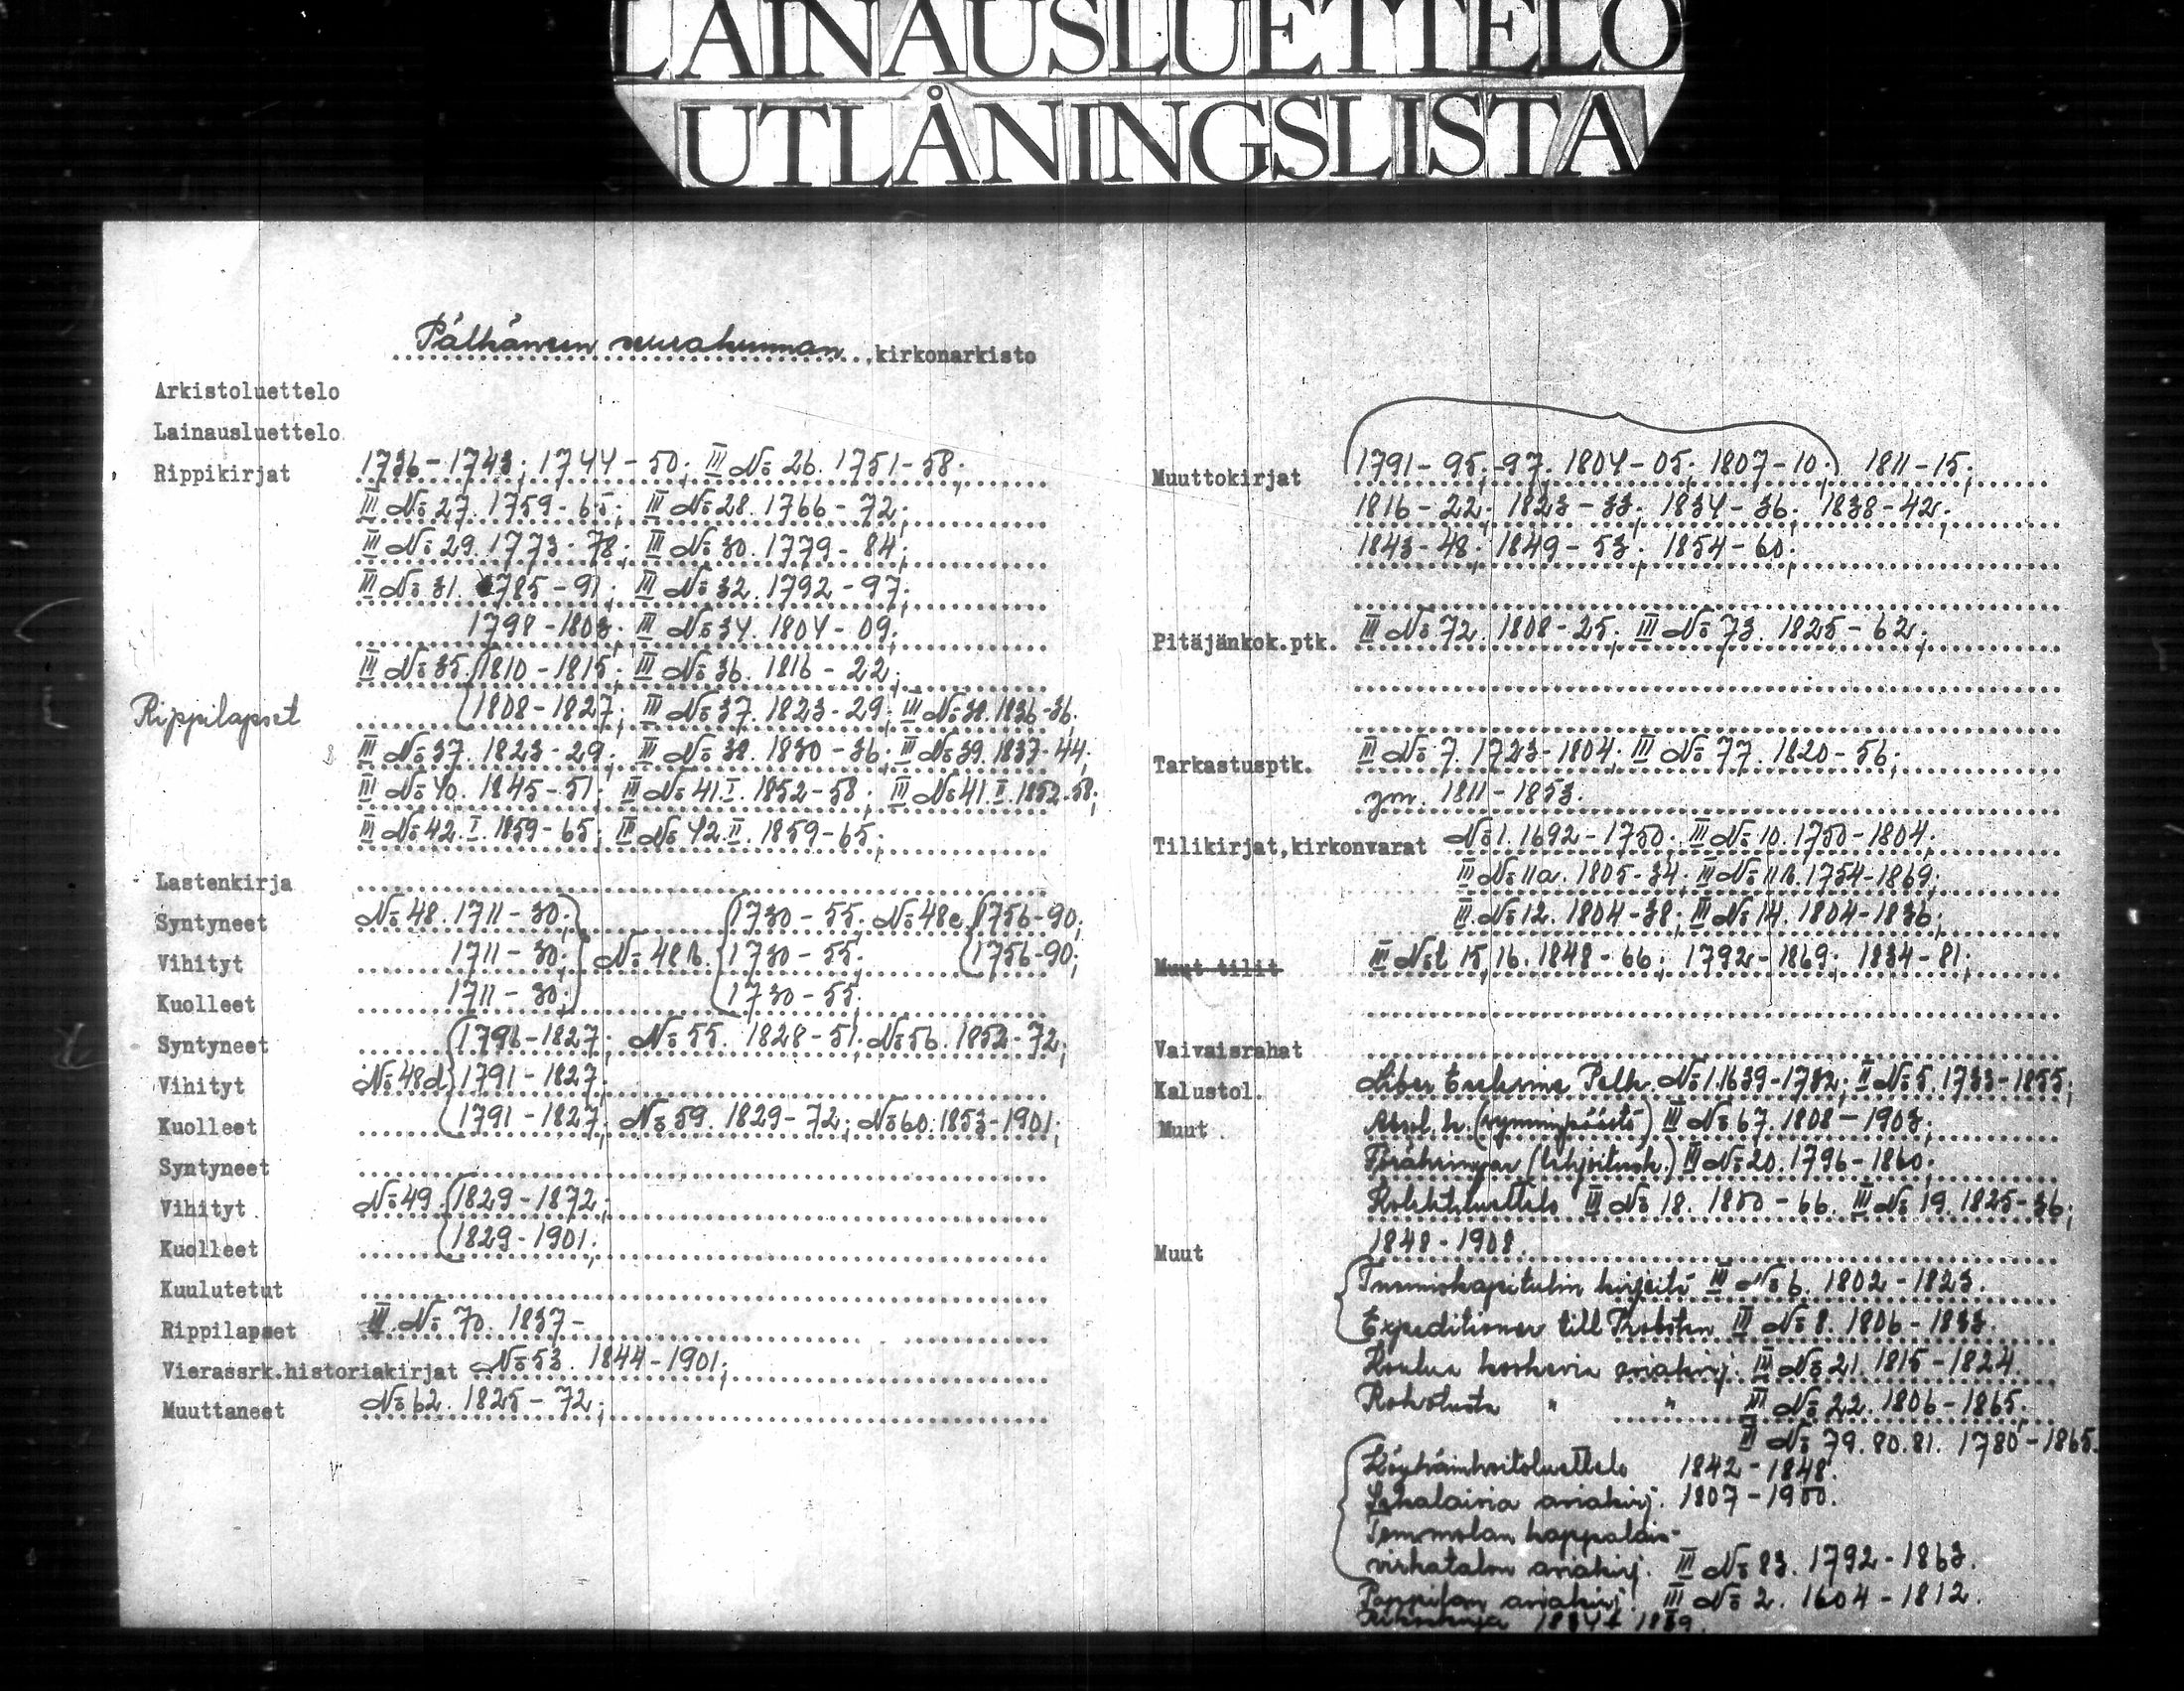 LAINAUSLUETTELO
UTLÅNINGSLISTA
Pälkäneen seurakunnan, kirkonarkisto
Arkistoluettelo
Lainausluettelo
Rippikirjat 1736-1743; 1744-50; III No 26. 1751-58;
III No 27. 1759-65; III No 28. 1766-72;
III No 29. 1773-78; III No 30. 1779-84;
III No 31. 1785-91; III No 32. 1792-97;
1798-1803; III No 34. 1804-09;
III No 35. (1810-1815; III No 36. 1816-22;
Rippilapset (1808-1827; III No 37. 1823-29; III No 38. 1836-36.
III No 37. 1823-29; III No 38. 1830-36; III No 39. 1837-44;
III No 40. 1845-51; III No 41.I. 1852-58; III No 41.II. 1852-58;
III No 42.I. 1859-65; III No 42.II. 1859-65;
Lastenkirja
Syntyneet No 48. 1711-30; (1730-55; No 48c (1756-90;
Vihityt 1711-30; No 48b. 1730-55; (1756-90;
Kuolleet 1711-30; (1730-55;
Syntyneet (1796-1827; No 55. 1828-51; No 56. 1852-72;
Vihityt No 48d 1791-1827;
Kuolleet (1791-1827; No 59. 1829-72; No 60. 1853-1901;
Syntyneet
Vihityt No 49 (1829-1872;
Kuolleet (1829-1901;
Kuulutetut
Rippilapset III No 70. 1837-
Vierassrk.historiakirjat No 53. 1844-1901;
Muuttaneet No 62. 1825-72;
Muuttokirjat (1791-95; -97; 1804-05; 1807-10;) 1811-15;
1816-22; 1823-33; 1834-36; 1838-42;
1843-48; 1849-53; 1854-60;
Pitäjänkok.ptk. III No 72. 1808-25; III No 73. 1825-62;
Tarkastusptk. III No 7. 1723-1804; III No 77. 1820-56;
ym. 1811-1853.
Tilikirjat,kirkonvarat No 1. 1692-1750; III No 10. 1750-1804;
III No 11a. 1805-34; III No 11b. 1754-1869;
III No 12. 1804-38; III No 14. 1804-1836;
Muut tilit III No t 15, 16. 1848-66; 1792-1869; 1834-81;
Vaivaisrahat
Kalustol. Liber Ecclesiae Pelk. No 1. 1639-1732; II No 5. 1733-1855;
Muut Absol. k. (synninpäästö) III No 67. 1808-1903;
Föräringar (lahjoitusk.) III No 20. 1796-1860;
Kolehtiluettelo III No 18. 1800-66. III No 19. 1825-36;
Muut 1848-1908.
Tuomiokapitulin kirjeitä III No 6. 1802-1823.
Expeditioner till Probsten III No 8. 1806-1833.
Koulua koskevia asiakirj. III No 21. 1815-1824.
Rokotusta " " III No 22. 1806-1865;
II No 79. 80. 81. 1780-1865.
Köyhäinhoitoluettelo 1842-1848.
Sekalaisia asiakirj. 1807-1900.
kappalais-
virkatalon asiakirj. III No 83. 1792-1863.
Pappilan asiakirj. III No 2. 1604-1812.